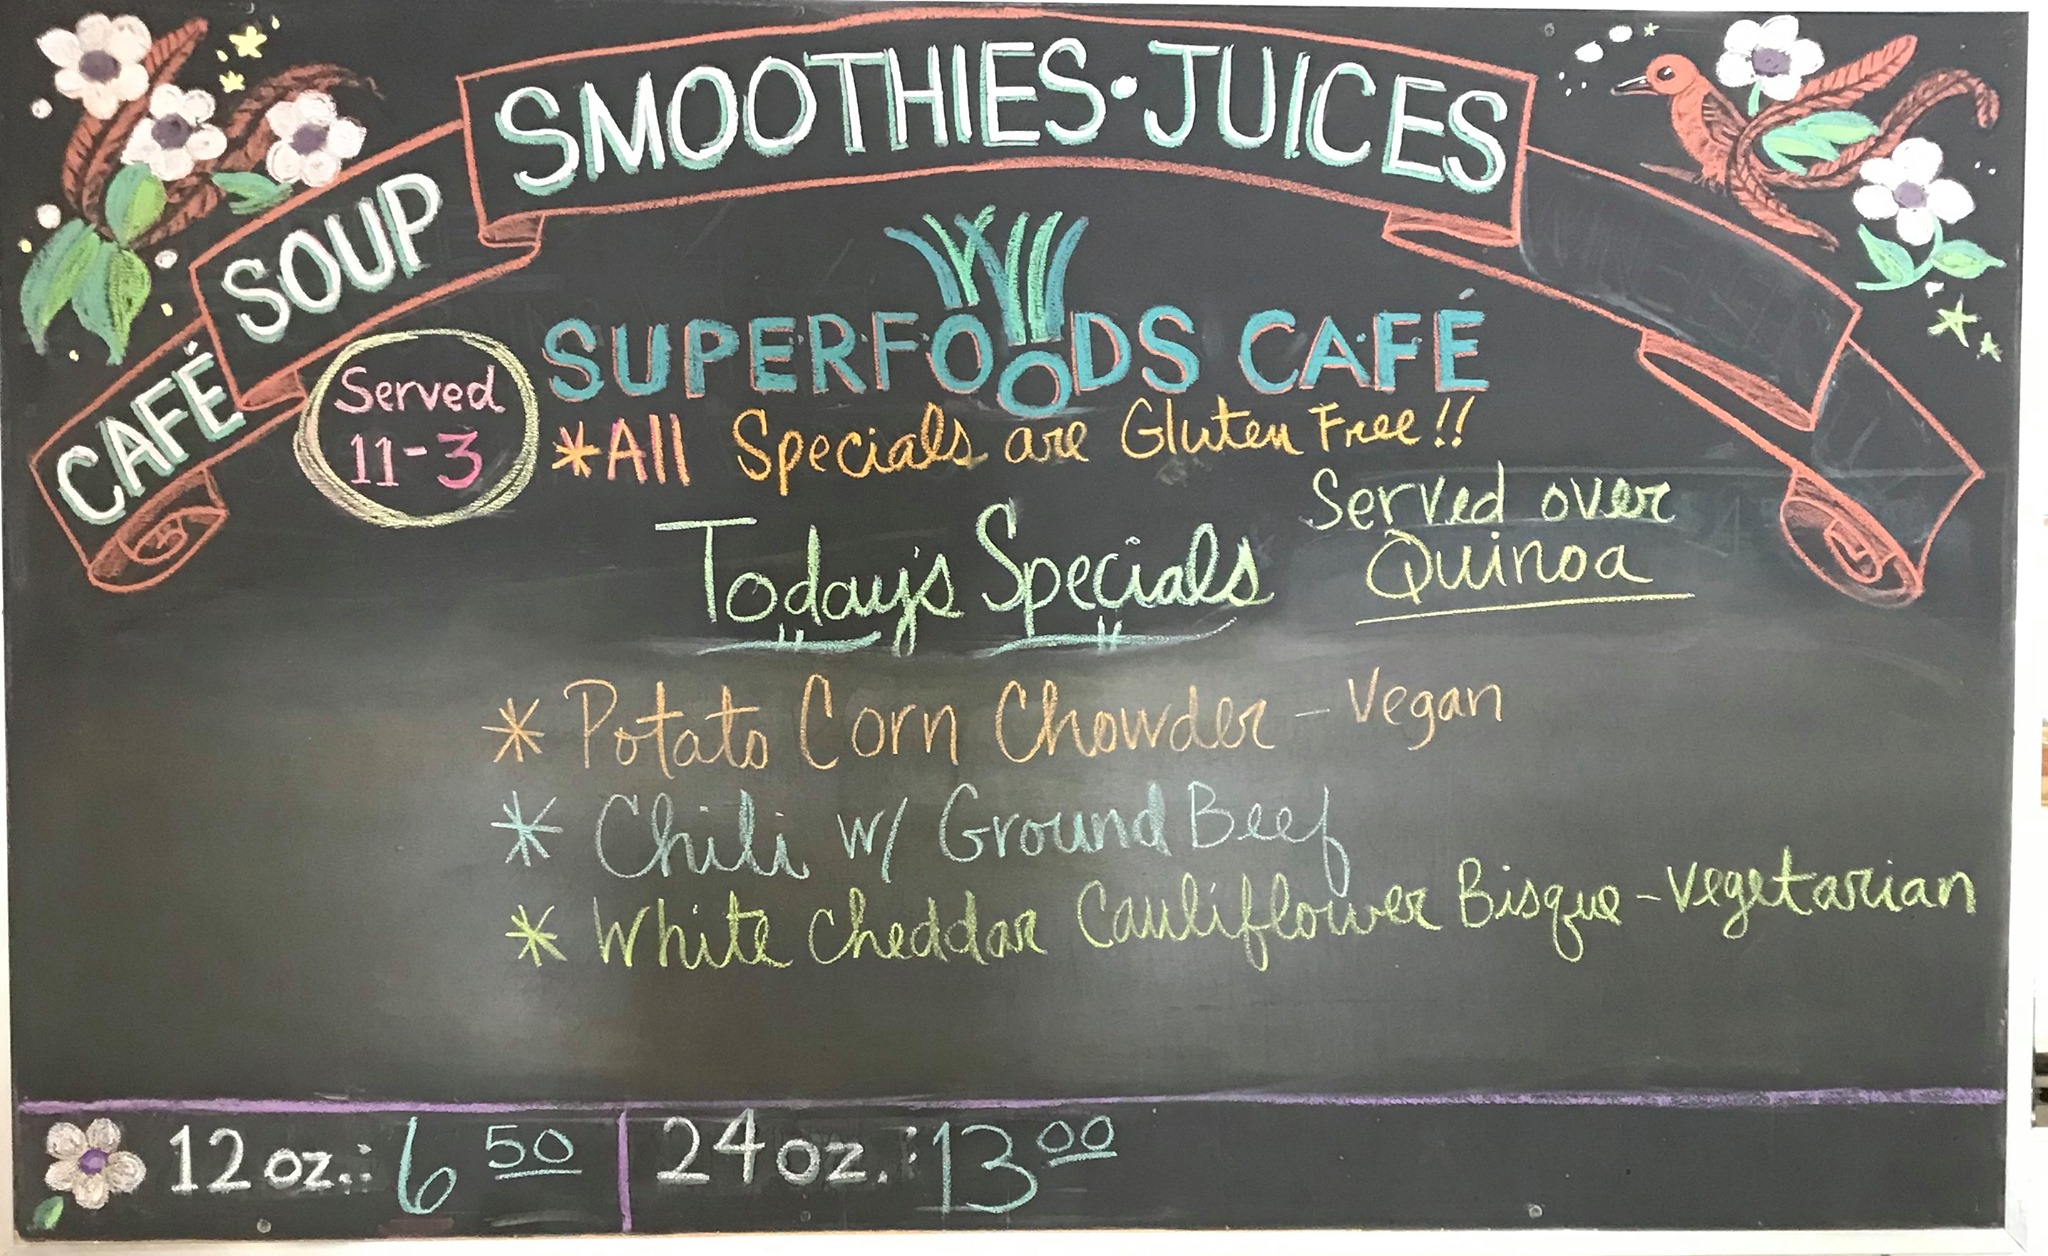 CAFÉ SOUP SMOOTHIES · JUICES
SUPERFOODS CAFÉ
Served
11-3
*All Specials are Gluten Free!!
Today's Specials
Served over
Quinoa
* Potato Corn Chowder - Vegan
* Chili w/ Ground Beef
* White Cheddar Cauliflower Bisque - Vegetarian
12 oz.: 6 50 24 oz.: 13 00